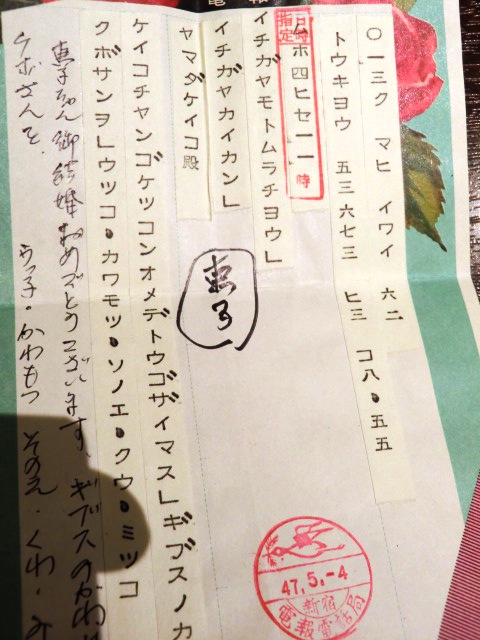 電報
〇一三ク マヒ イワイ 六二
トウキヨウ 五三六七三 ヒ三 コ八・五五
日時指定
ムホ四ヒセ一一時
イチガヤモトムラチヨウ」
イチガヤカイカン」
ヤマダケイコ殿
恵子
ケイコチヤンゴケツコンオメデトウゴザイマス」ギブスノカ
クボサンヲ」ウツコ・カワモツ・ソノエ・クウ・ミツコ
恵子ちゃん御結婚おめでとうございます、ギブスのかわり
クボさんを、 うっ子・かわもつ そのえ・くわ・み
47.5.-4
新宿
電報電話局